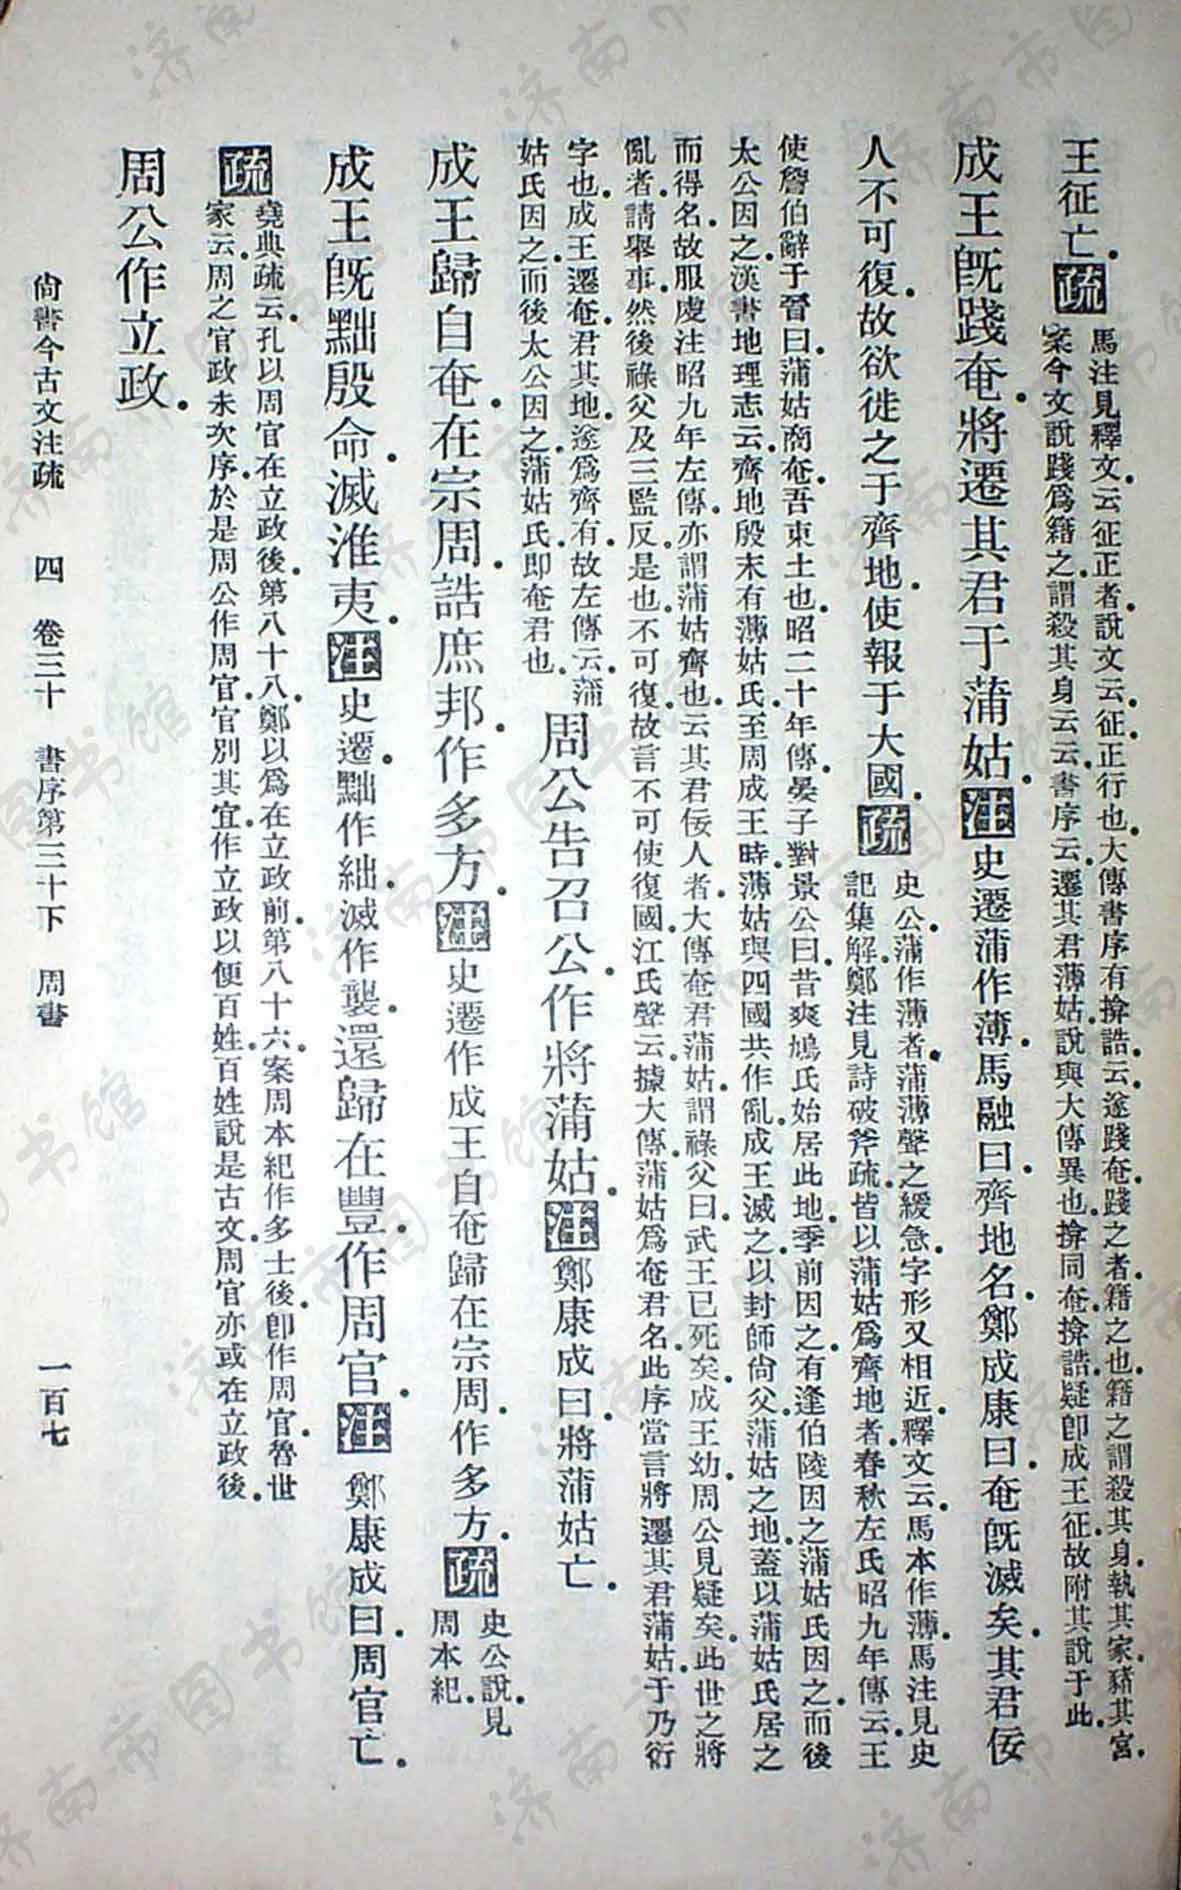 王征亡。疏
馬注見釋文。云征正者。說文云。征。正行也。大傳書序有揜誥。云。遂踐奄。踐之者。籍之也。籍之謂殺其身。執其家。豬其宮。
案今文說踐爲籍之。謂殺其身云云。書序云。遷其君薄姑。說與大傳異也。揜同奄。揜誥疑卽成王征。故附其說于此。
成王旣踐奄。將遷其君于蒲姑。注史遷蒲作薄。馬融曰。齊地名。鄭成康曰。奄旣滅矣。其君佞
人不可復。故欲徙之于齊地。使報于大國。疏
史公蒲作薄者。蒲薄聲之緩急。字形又相近。釋文云。馬本作薄。馬注見史
記集解。鄭注見詩破斧疏。皆以蒲姑爲齊地者。春秋左氏昭九年傳云。王
使詹伯辭于晉曰。蒲姑商奄。吾東土也。昭二十年傳。晏子對景公曰。昔爽鳩氏始居此地。季萴因之。有逢伯陵因之。蒲姑氏因之。而後
太公因之。漢書地理志云。齊地殷末有薄姑氏。至周成王時。薄姑與四國共作亂。成王滅之。以封師尙父。蒲姑之地。蓋以蒲姑氏居之
而得名。故服虔注昭九年左傳。亦謂蒲姑。齊也。云其君佞人者。大傳奄君蒲姑。謂祿父曰。武王已死矣。成王幼。周公見疑矣。此世之將
亂者。請舉事。然後祿父及三監反。是也。不可復。故言不可使復國。江氏聲云。據大傳。蒲姑爲奄君名。此序當言將遷其君蒲姑。于乃衍
字也。成王遷奄君其地。遂爲齊有。故左傳云。蒲
姑氏因之。而後太公因之。蒲姑氏卽奄君也。
周公告召公。作將蒲姑。注鄭康成曰。將蒲姑亡。
成王歸自奄。在宗周。誥庶邦。作多方。注史遷作成王自奄歸在宗周。作多方。疏
史公說見
周本紀。
成王旣黜殷命。滅淮夷。注史遷黜作絀。滅作襲。還歸在豐。作周官。注鄭康成曰。周官亡。
疏
堯典疏云。孔以周官在立政後。第八十八。鄭以爲在立政前。第八十六。案周本紀作多士後。卽作周官。魯世
家云。周之官政未次序。於是周公作周官。官別其宜。作立政以便百姓。百姓說。是古文。周官亦或在立政後。
周公作立政。
尙書今古文注疏　四　卷三十　書序第三十下　周書　一百七